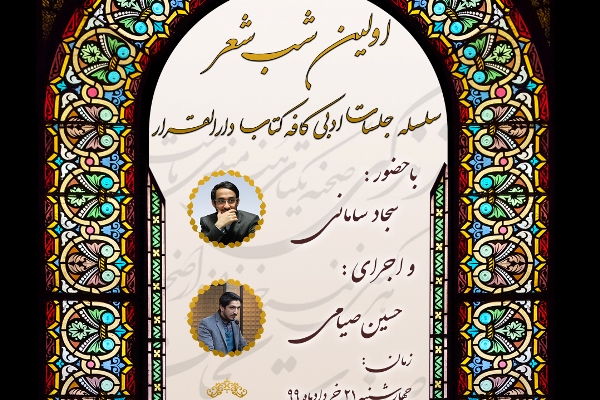 اولین شب شعر
سلسله جلسات ادبی کافه کتاب دارالقرار
با حضور :
سجاد سامانی
و اجرای :
حسین صیامی
زمان:
چهارشنبه ۲۱ خردادماه ۹۹